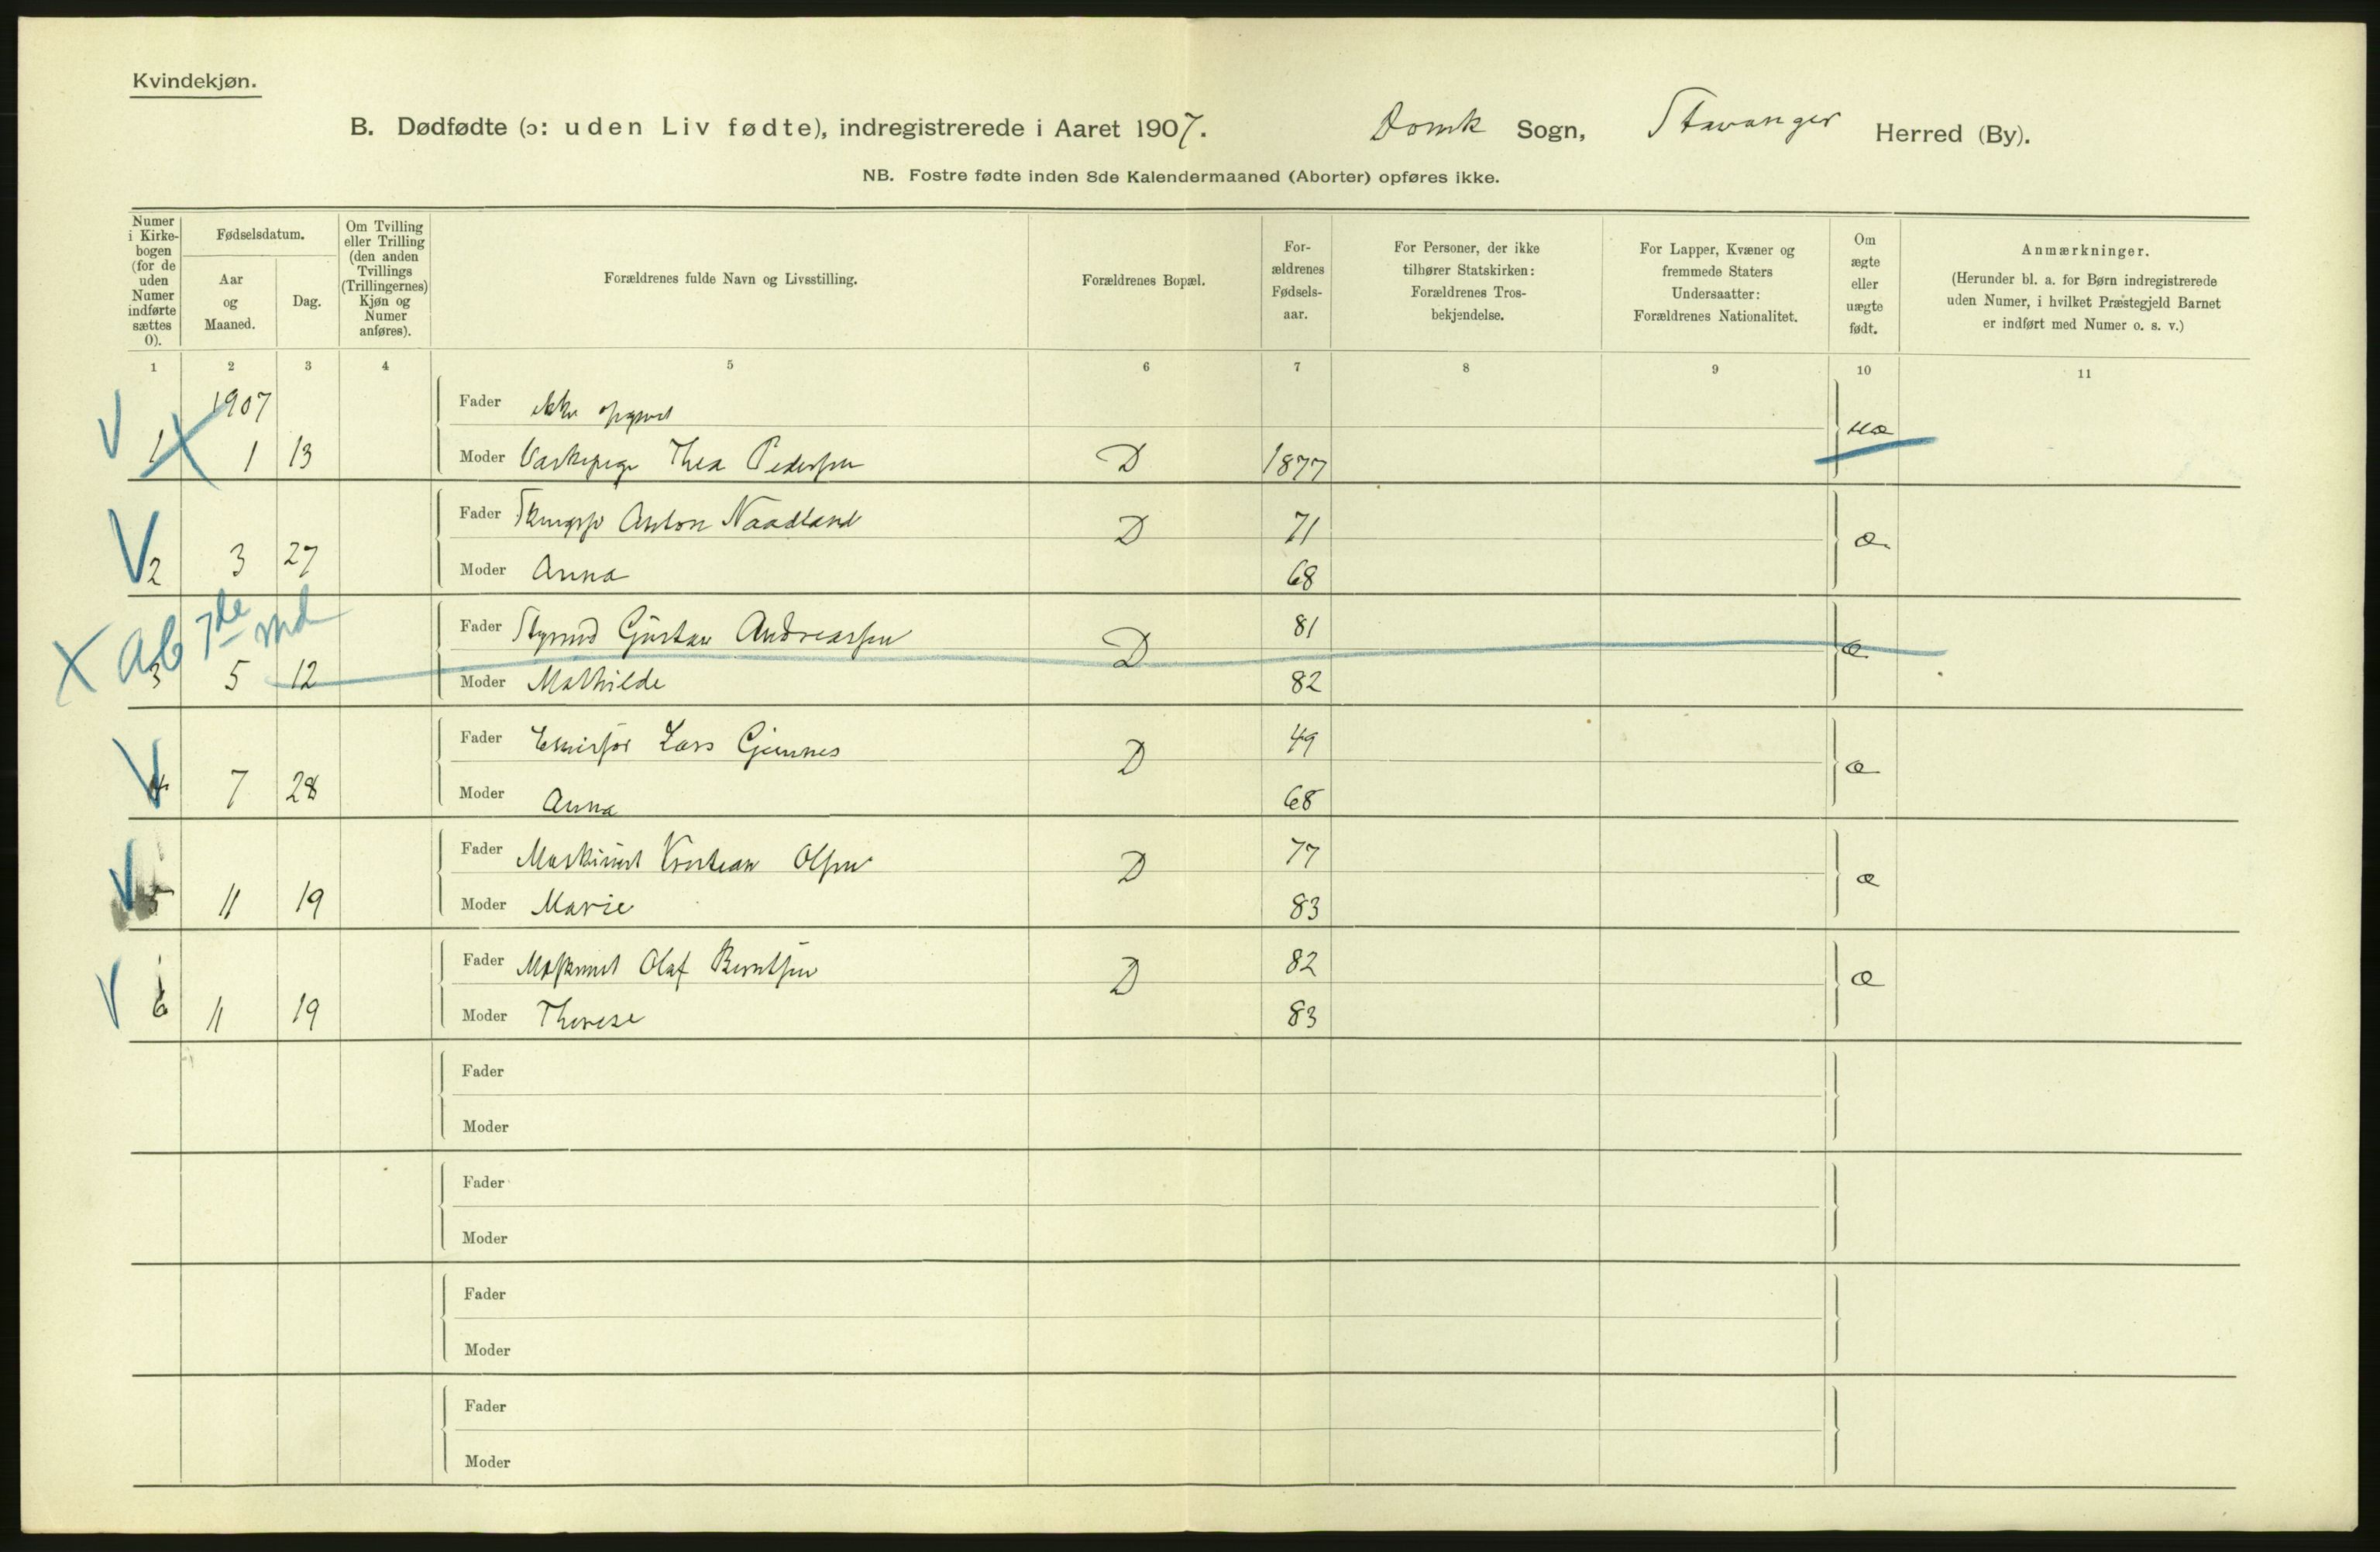 Kvindekjøn.
B. Dødfødte (ɔ: uden Liv fødte), indregistrerede i Aaret 1907. Domk Sogn, Stavanger Herred (By).
NB. Fostre fødte inden 8de Kalendermaaned (Aborter) opføres ikke.
Numer i Kirke-bogen (for de uden Numer indførte sættes 0).
Fødselsdatum.
Aar og Maaned.
Dag.
Om Tvilling eller Trilling (den anden Tvillings (Trillingernes) Kjøn og Numer anføres).
Forældrenes fulde Navn og Livsstilling.
Forældrenes Bopæl.
For-ældrenes Fødsels-aar.
For Personer, der ikke tilhører Statskirken: Forældrenes Tros-bekjendelse.
For Lapper, Kvæner og fremmede Staters Undersaatter: Forældrenes Nationalitet.
Om ægte eller uægte født.
Anmærkninger.
(Herunder bl. a. for Børn indregistrerede uden Numer, i hvilket Præstegjeld Barnet er indført med Numer o. s. v.)
1 2 3 4 5 6 7 8 9 10 11
1907
Fader ikke opgivet
V 1 X 1 13 Moder Thea Pedersen D 1877 uæ
Fader Anton Naadland D 71 æ
V 2 3 27 Moder Anna 68
X Ab 7de md
Fader Styrmd Gustav Andreassen D 81 æ
3 5 12 Moder Mathilde 82
Fader Lars Gjennes D 49 æ
V 4 7 28 Moder Anna 68
Fader Maskinist Kristian Olsen D 77 æ
V 5 11 19 Moder Marie 83
Fader Olaf Berntsen D 82 æ
V 6 11 19 Moder Therese 83
Fader
Moder
Fader
Moder
Fader
Moder
Fader
Moder